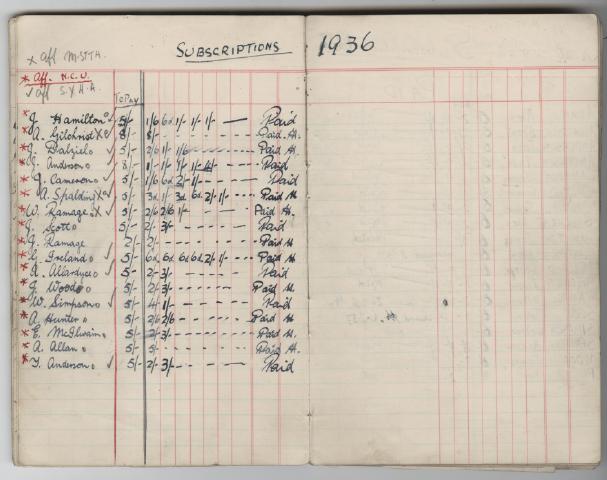 SUBSCRIPTIONS 1936
x aff M.S.T.A.
* Aff. N.C.U.
✓ aff S.Y.H.A.
To Pay
* J. Hamilton ✓ 5/- 1/6 6d 1/- 1/- 1/- — Paid
* A. Gilchrist x Paid
* J. Dalziel ✓ 5/- 2/6 1/- 1/6 Paid
* J. Anderson ✓ Paid
* J. Cameron ✓ 5/- 1/6 6d 2/- 1/- Paid
* A. Spalding x ✓ 5/- 3d 1/- 3d 6d 2/- 1/- Paid
* W. Ramage x ✓ 5/- 2/6 2/6 Paid
* J. Scott 5/- 2/- 3/- Paid
* J. Ramage 2/- 2/- Paid
* G. Ireland ✓ 5/- 6d 6d 6d 6d 2/- 1/- Paid
* A. Allardyce ✓ 5/- 2/- 3/- Paid
* J. Woods 5/- 2/- 3/- Paid
* W. Simpson ✓ 5/- 4/- 1/- Paid
* A. Hunter 5/- 2/6 2/6 Paid
* E. McIlwain 5/- 2/- 3/- Paid
* A. Allan 5/- 5/- Paid
* T. Anderson ✓ 5/- 2/- 3/- Paid